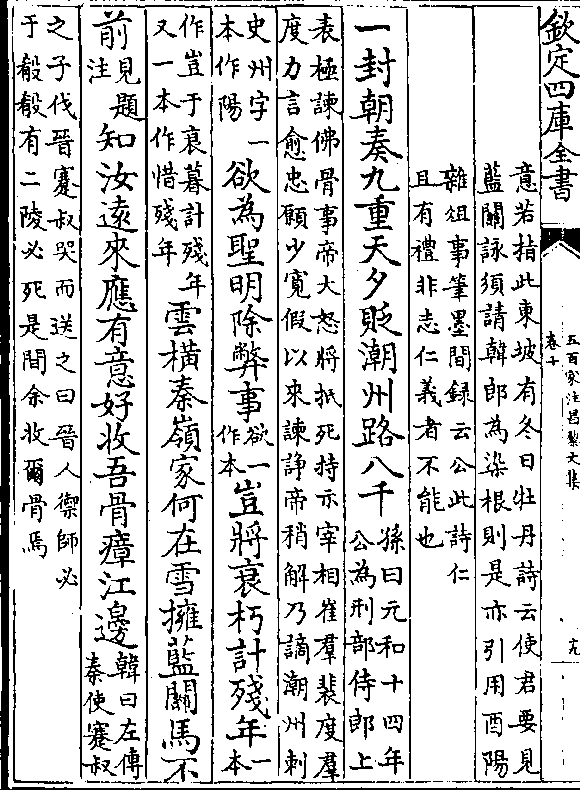 欽定四庫全書
五百家注昌黎文集
卷十
九
意若指此東坡有冬日牡丹詩云使君要見
藍關詠須請韓郎為染根則是亦引用酉陽
雜俎事筆墨間録云公此詩仁
且有禮非志仁義者不能也
一封朝奏九重天夕貶潮州路八千
孫曰元和十四年
公為刑部侍郎上
表極諫佛骨事帝大怒將抵死持示宰相崔羣裴度羣
度力言愈忠願少寬假以來諫諍帝稍解乃謫潮州刺
史州字一
本作陽
欲為聖明除弊事
欲一
作本
豈將衰朽計殘年
一
本
作豈于衰暮計殘年
又一本作惜殘年
雲橫秦嶺家何在雪擁藍關馬不
前
見題
注
知汝遠來應有意好收吾骨瘴江邊
韓曰左傳
秦使蹇叔
之子伐晉蹇叔哭而送之曰晉人禦師必
于殽殽有二陵必死是間余收爾骨焉